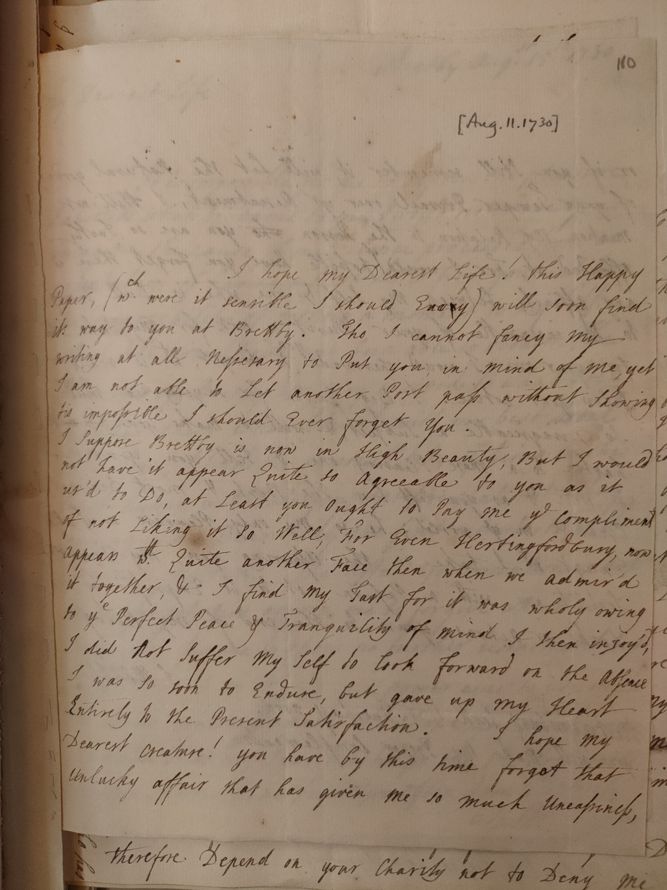 110
[Aug. 11. 1730]
I hope my Dearest Life! this Happy
Paper, (wch were it sensible I should Envy) will soon find
its way to you at Brettby. Tho I cannot fancy My
writing at all Nessesary to Put you in mind of me, yet
I am not able to Let another Post pass without showing
tis impossible I should Ever forget You.
I Suppose Brettby is now in High Beauty, But I would
not have it appear Quite so Agreeable to you as it
us'd to Do, at Least you ought to Pay me ye Compliment
of not Liking it so Well, For Even Hertingfordbury, now
appears Quite another Face then when we admir'd
it together, & I find my Tast for it was wholy owing
to ye Perfect Peace & Tranquility of mind I then injoy'd,
I did Not Suffer My Self to look forward on the Absence
I was so soon to Endure, but gave up my Heart
Entirely to the Present Satisfaction. I hope my
Dearest Creature! you have by this time forgot that
unlucky affair that has given me so much Uneasiness,
therefore Depend on your Charity not to Deny me